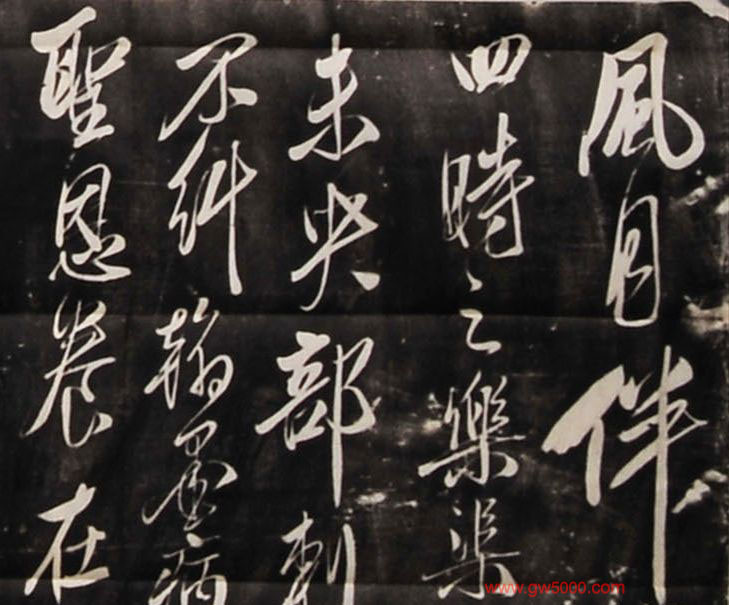 風月伴
四時之樂渠
未央部刺
不糾翰墨病
聖恩養在
www.gw5000.com